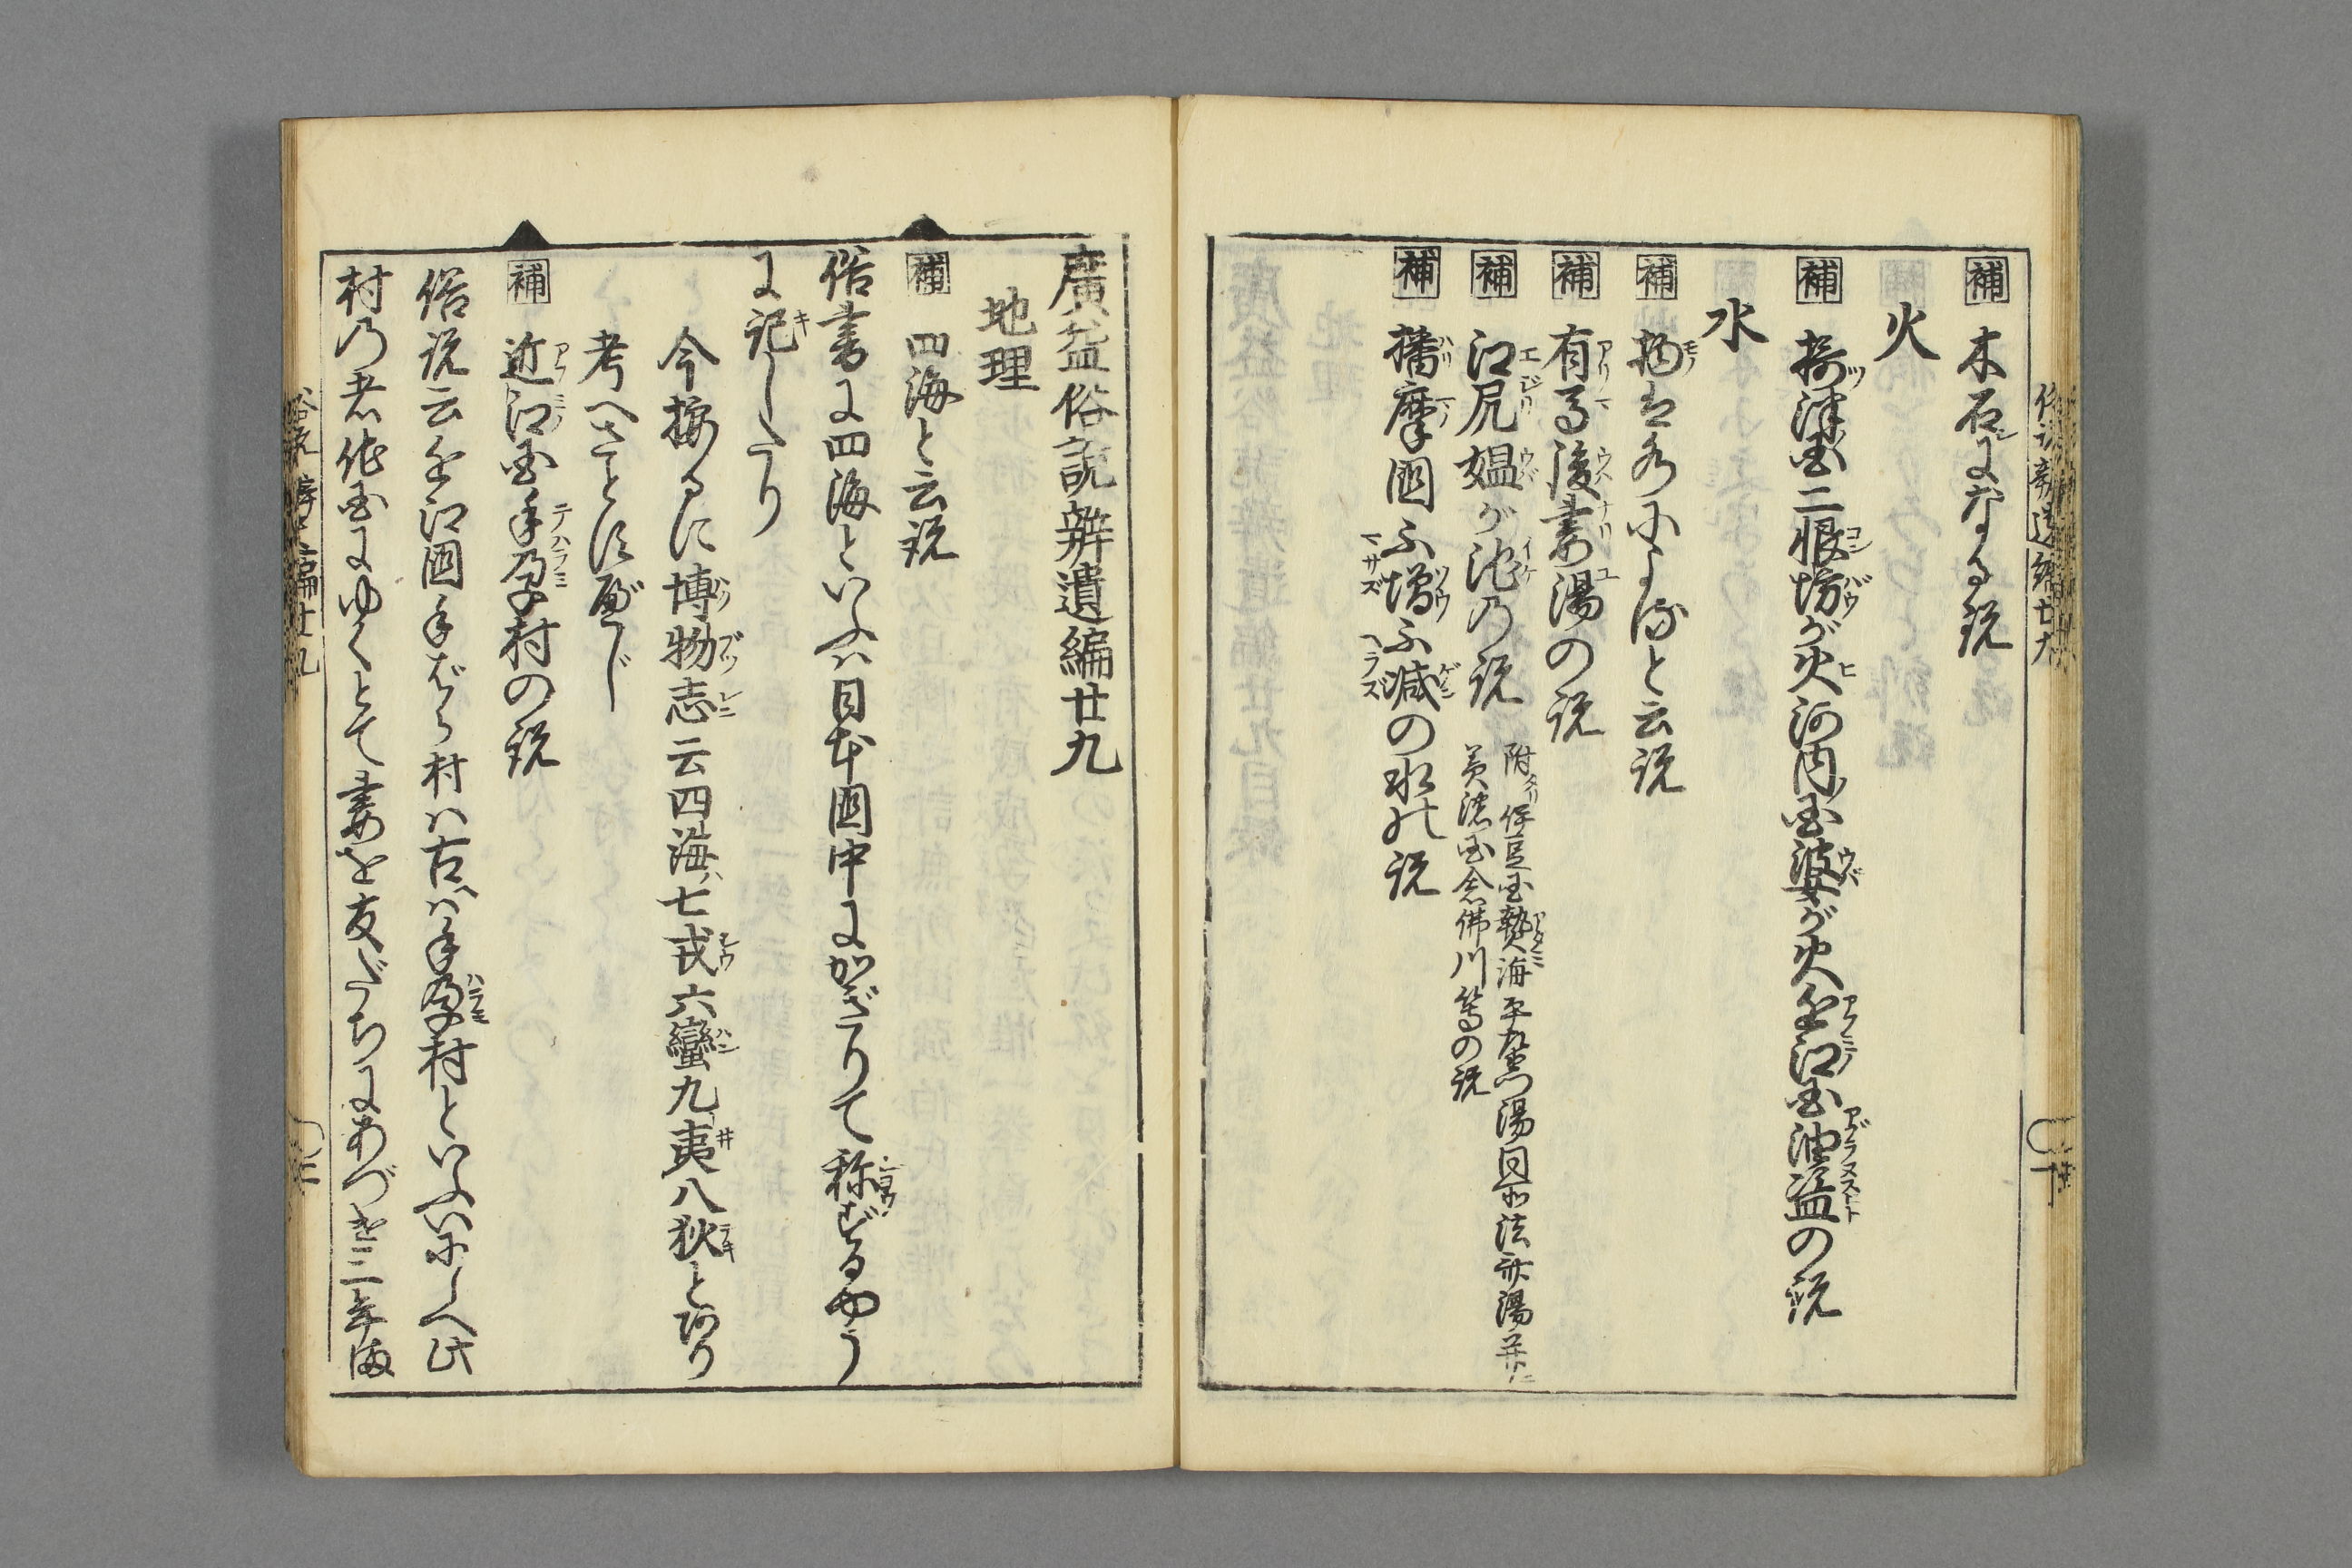 補 木石になる説
火
補 摂津国二恨坊が火河内国婆が火近江国油盗の説
水
補 物は水によると云説
補 有馬後妻湯の説
補 江尻媼が池の説 附伊豆国熱海平左衛門湯同所法斎湯并に
美濃国念佛川等の説
補 播摩國不増不減の水の説
廣益俗説辨遺編廿九
地理
補 四海と云説
俗書に四海といふハ日本國中にかぎりて称ずるやう
に記したり
今按るに博物志云四海ハ七戎六蠻九夷八狄とあり
考へさとすべし
補 近江国手孕村の説
俗説云近江國手ばら村ハ古ハ手孕村といふいにしへ此
村の者他国にゆくとて妻を友だちにあづけ三年海